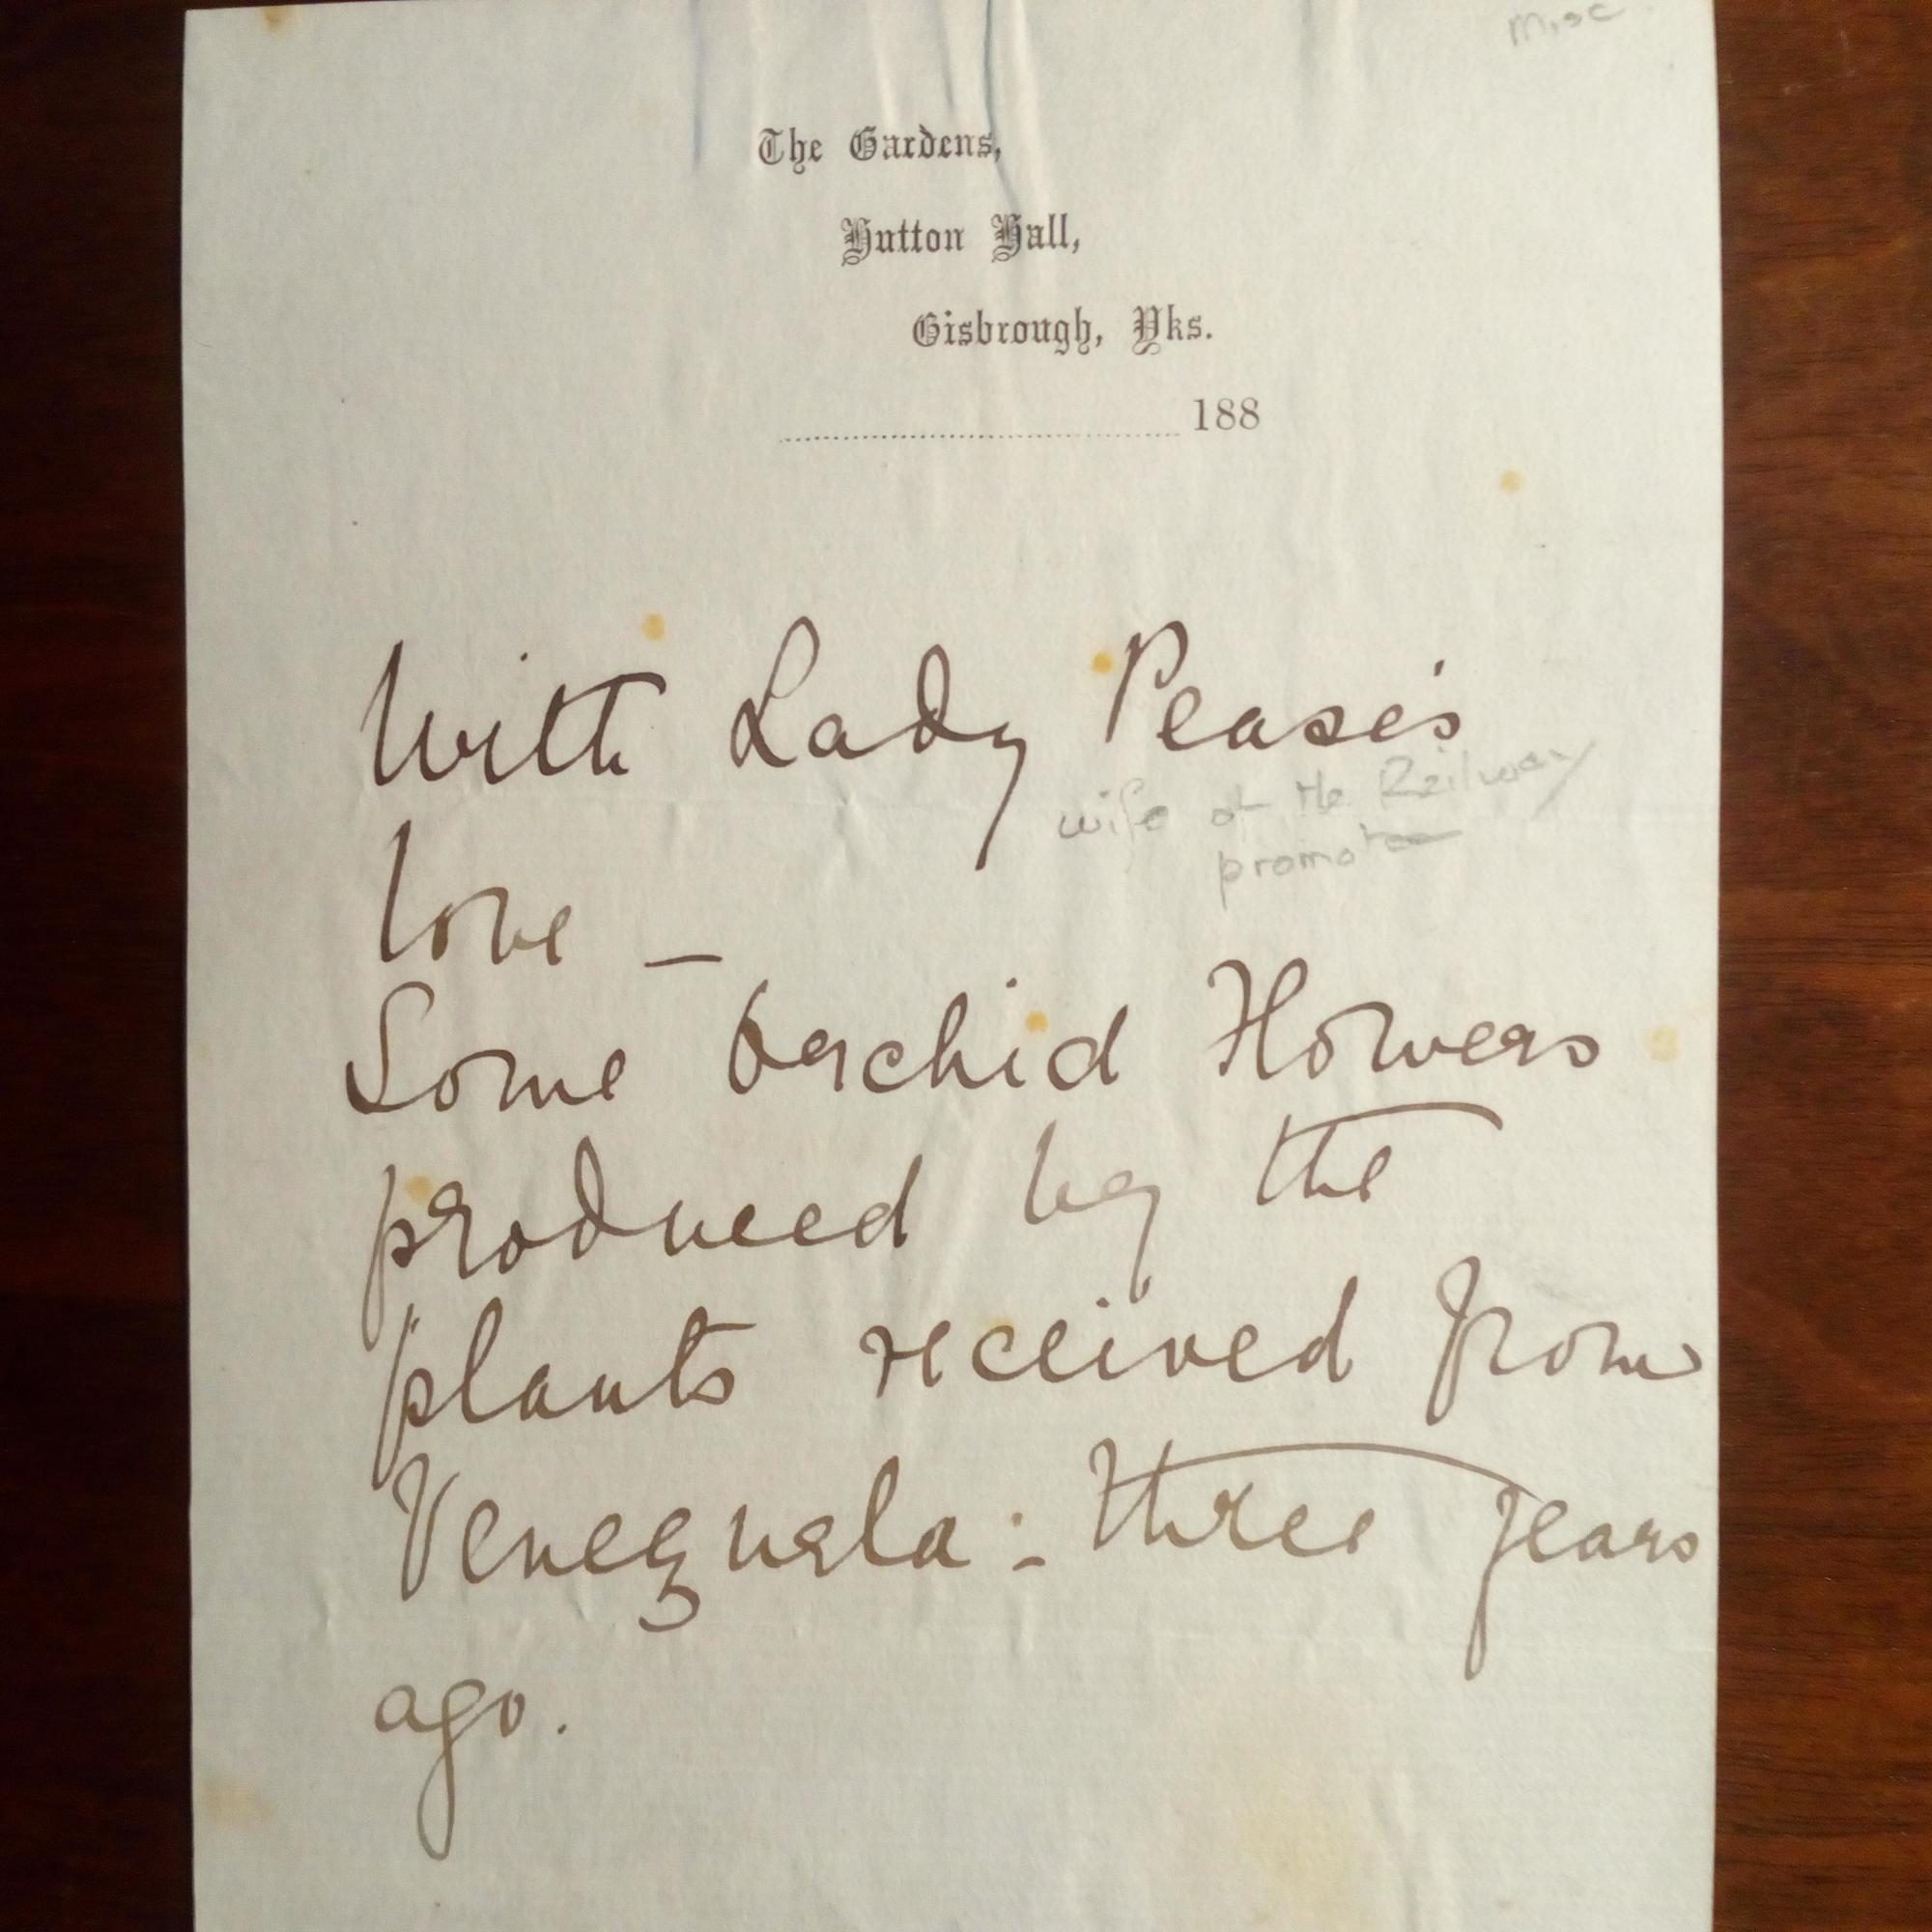 Misc.
The Gardens,
Hutton Hall,
Gisbrough, Yks.
188
With Lady Pease's
wife of the Railway
promoter
love –
Some Orchid Flowers
produced by the
plants received from
Venezuela :– three years
ago.